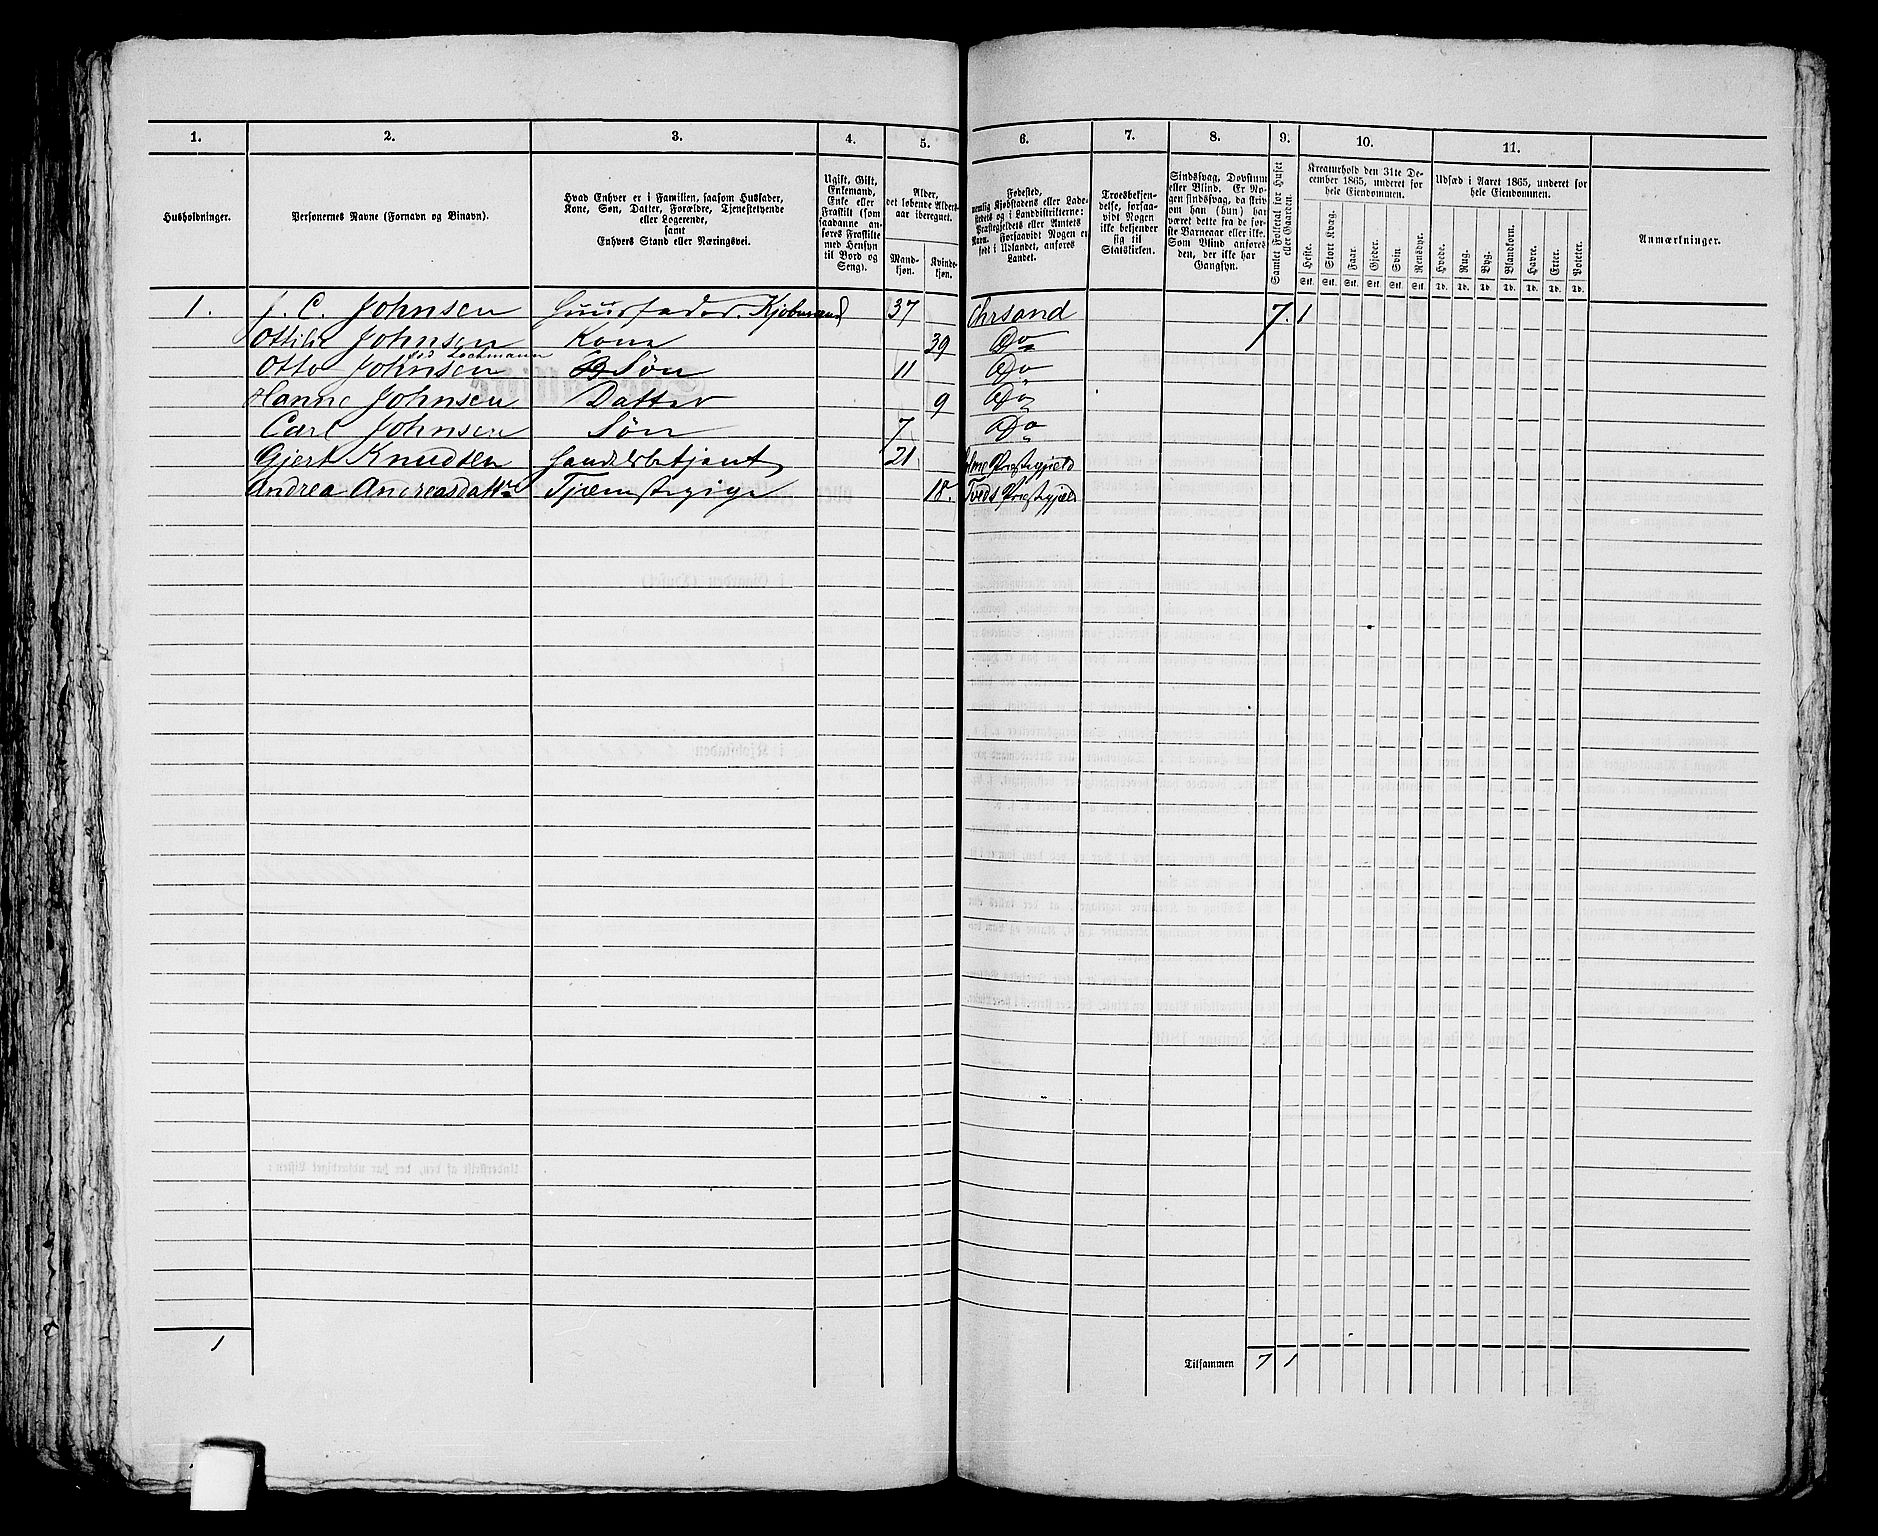 1. 2. 3. 4. 5. 6. 7. 8. 9. 10. 11.
Husholdninger.
Personernes Navne (Fornavn og Binavn).
Hvad Enhver er i Familien, saasom Husfader,
Kone, Søn, Datter, Forældre, Tjenestetyende
eller Logerende,
samt
Enhvers Stand eller Næringsvei.
Ugift, Gift,
Enkemand,
Enke eller
Fraskilt (som
saadanne an-
føres Fraskilte
med Hensyn
til Bord og
Seng).
Alder,
det løbende Alders-
aar iberegnet.
Mand-
kjøn.
Kvinde-
kjøn.
Fødested,
nemlig Kjøbstadens eller Lade-
stedets og i Landdistrikterne:
Præstegjeldets eller Amtets
Navn. Forsaavidt Nogen er
født i Udlandet, anføres
Landet.
Troesbekjen-
delse, forsaa-
vidt Nogen
ikke bekjender
sig til
Statskirken.
Sindssvag, Døvstum
eller Blind. Er No-
gen sindssvag, da skriv
om han (hun) har
været dette fra de før-
ste Barneaar eller ikke.
Som Blind anføres
den, der ikke har
Gangsyn.
Samlet Folketal for Huset
eller Gaarden.
Kreaturhold den 31te De-
cember 1865, underet for
hele Eiendommen.
Heste. Stort Kvæg. Faar. Gjeder. Svin. Rensdyr.
Stk. Stk. Stk. Stk. Stk. Stk.
Udsæd i Aaret 1865, underet for
hele Eiendommen.
Hvede. Rug. Byg. Blandkorn. Havre. Erter. Poteter.
Td. Td. Td. Td. Td. Td. Td.
Anmærkninger.
1. J. C. Johnsen Huusfader. Kjøbmand 37 Chrsand 7. 1
Ottilie Johnsen Kone 39 Do
fød Lochmann
Otto Johnsen Søn 11 Do
Hanne Johnsen Datter 9 Do
Carl Johnsen Søn 7 Do
Gjert Knudsen Handelsbetjent 21 Præstegjeld
Andrea Andreasdatter Tjenestepige 18. Tveds Præstegjel
1
Tilsammen 7 1